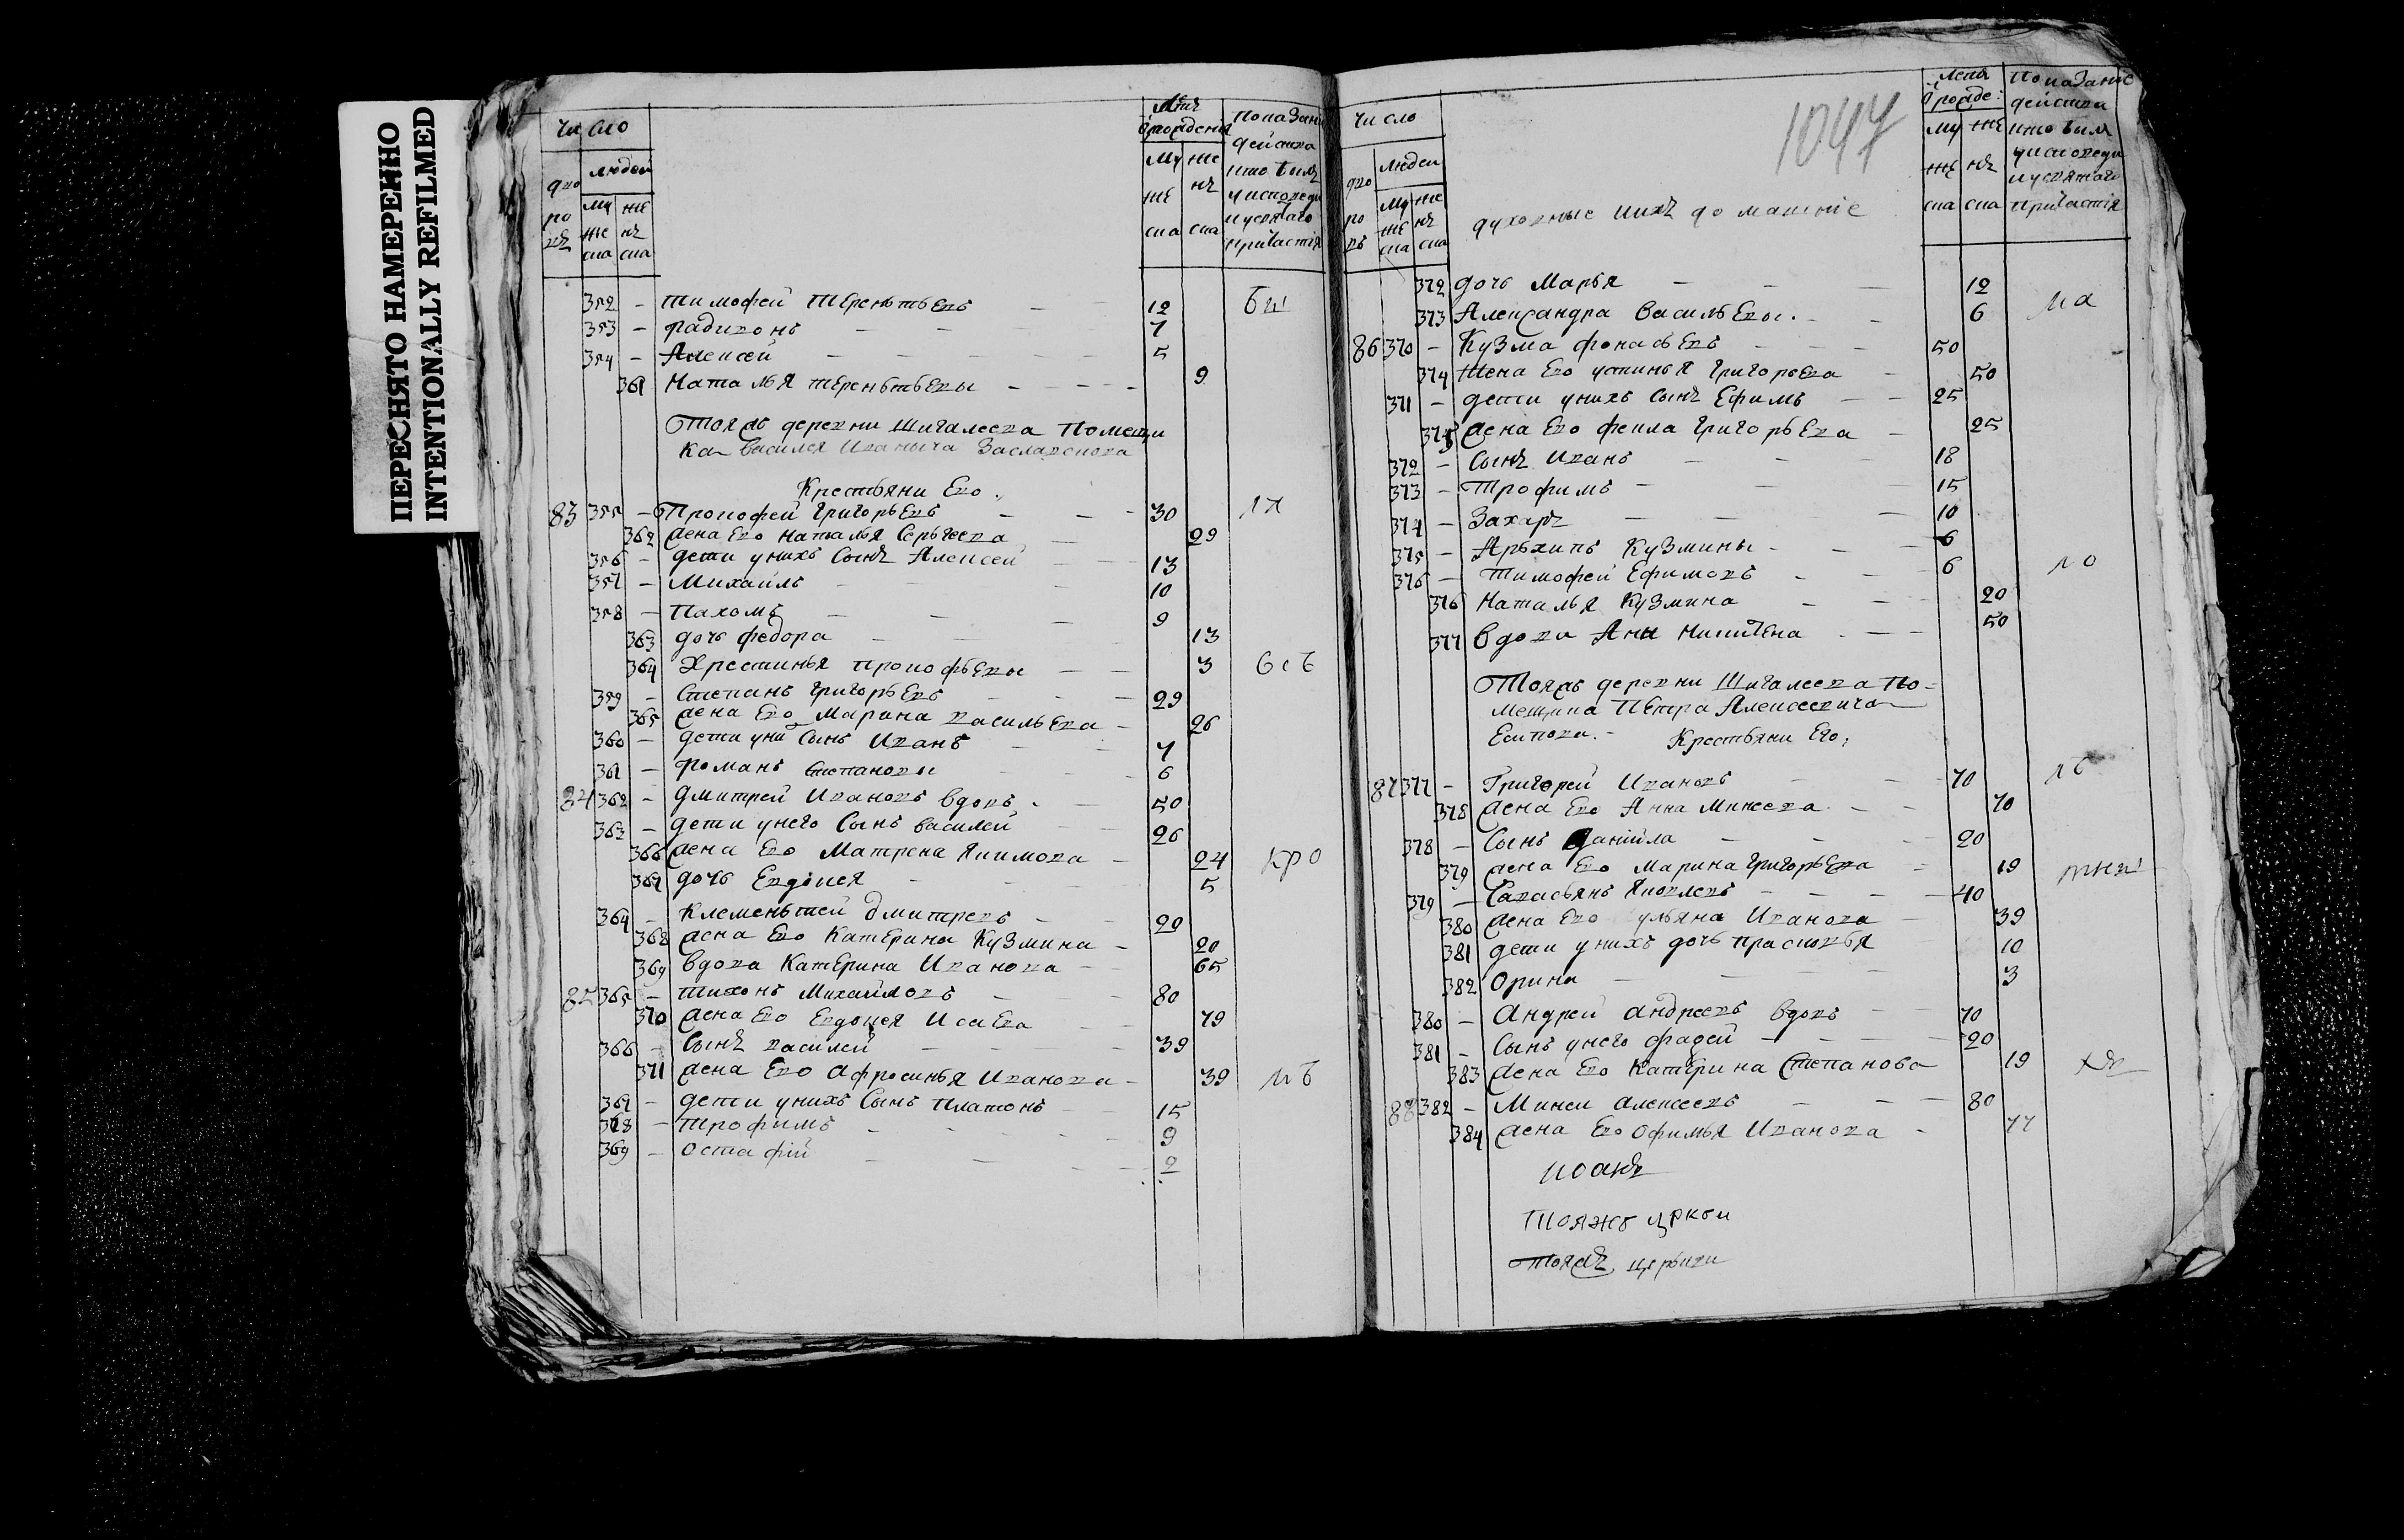 ПЕРЕСНЯТО НАМЕРЕННО
INTENTIONALLY REFILMED
число
людей
дво
ро
въ
му
же
ска
же
нъ
ска
лѣта
ѿ рождения
му
же
ска
же
нъ
ска
показани
действа
кто былъ
у исповеди
и у святаго
причастїя
352 – тимофей терентьевъ – 12
353 – радивонъ – 7
354 – Алексей – 5
361 Наталья терентьевы – 9
Тояжъ деревни Шигалеева помещи
ка василея иваныча
Крестьяни Ево
83 355 – Прокофей григорьевъ – 30
362 жена ево наталья сергеева – 29
356 – дети у нихъ сынъ Алексей – 13
357 – Михайлъ – 10
358 – пахомъ – 9
363 дочь федора – 13
364 Хрестинья прокофьевы – 3
359 – степанъ григорьевъ – 29
365 жена ево марина васильева – 26
360 – дети у ни сынъ иванъ – 7
361 – романъ степановы – 6
84 362 – дмитрей ивановъ вдовъ – 50
363 – дети у него сынъ василей – 26
366 жена ево матрена якимова – 24
367 дочь евдокея – 5
364 – клеменьтей дмитревъ – 20
368 жена ево катерина кузмина – 20
369 вдова катерина иванова – 65
85 365 – тихонъ михайловъ – 80
370 жена ево евдокея исаева – 79
366 – сынъ василей – 39
371 жена ево афросинья иванова – 39
367 – дети у нихъ сынъ платонъ – 15
368 – трофимъ – 9
369 – остафїй – 2
1047
число
людей
дво
ро
въ
му
же
ска
же
нъ
ска
духовные и ихъ домашнїе
лета
ѿ рожде:
му
же
ска
же
нъ
ска
показание
действа
кто былъ
у исповеди
и у святаго
причастїя
372 дочь Марья – 12
373 Александра васильевы. – 6
86 370 – Кузма фонасьевъ – 50
374 жена ево устинья григорьева – 50
371 – дети у нихъ сынъ Ефимъ – 25
375 жена ево фекла григорьева – 25
372 – сынъ иванъ – 18
373 – трофимъ – 15
374 – Захаръ – 10
375 – Архипъ Кузмины – 6
376 – тимофей Ефимовъ – 6
376 наталья Кузмина – 20
377 вдова Анна никитена – 50
Тояжъ деревни Шигалеева по=
мещика Петра Алексеевича
Есипова. – Крестьяни Его;
87 377 – Григорей ивановъ – 70
378 жена ево Анна микеева – 70
378 – сынъ данїила – 20
379 жена ево марина григорьева – 19
379 – савасьянъ яковлевъ – 40
380 жена ево ульяна иванова – 39
381 дети у нихъ дочь прасковья – 10
382 орина – 3
380 – Андрей андреевъ вдовъ – 70
381 – сынъ у него фадей – 20
383 жена ево катерина степанова – 19
88 382 – микеи алексеевъ – 80
384 жена ево офимья иванова – 77
иоанъ
тояжъ цркви
тояжъ церькви